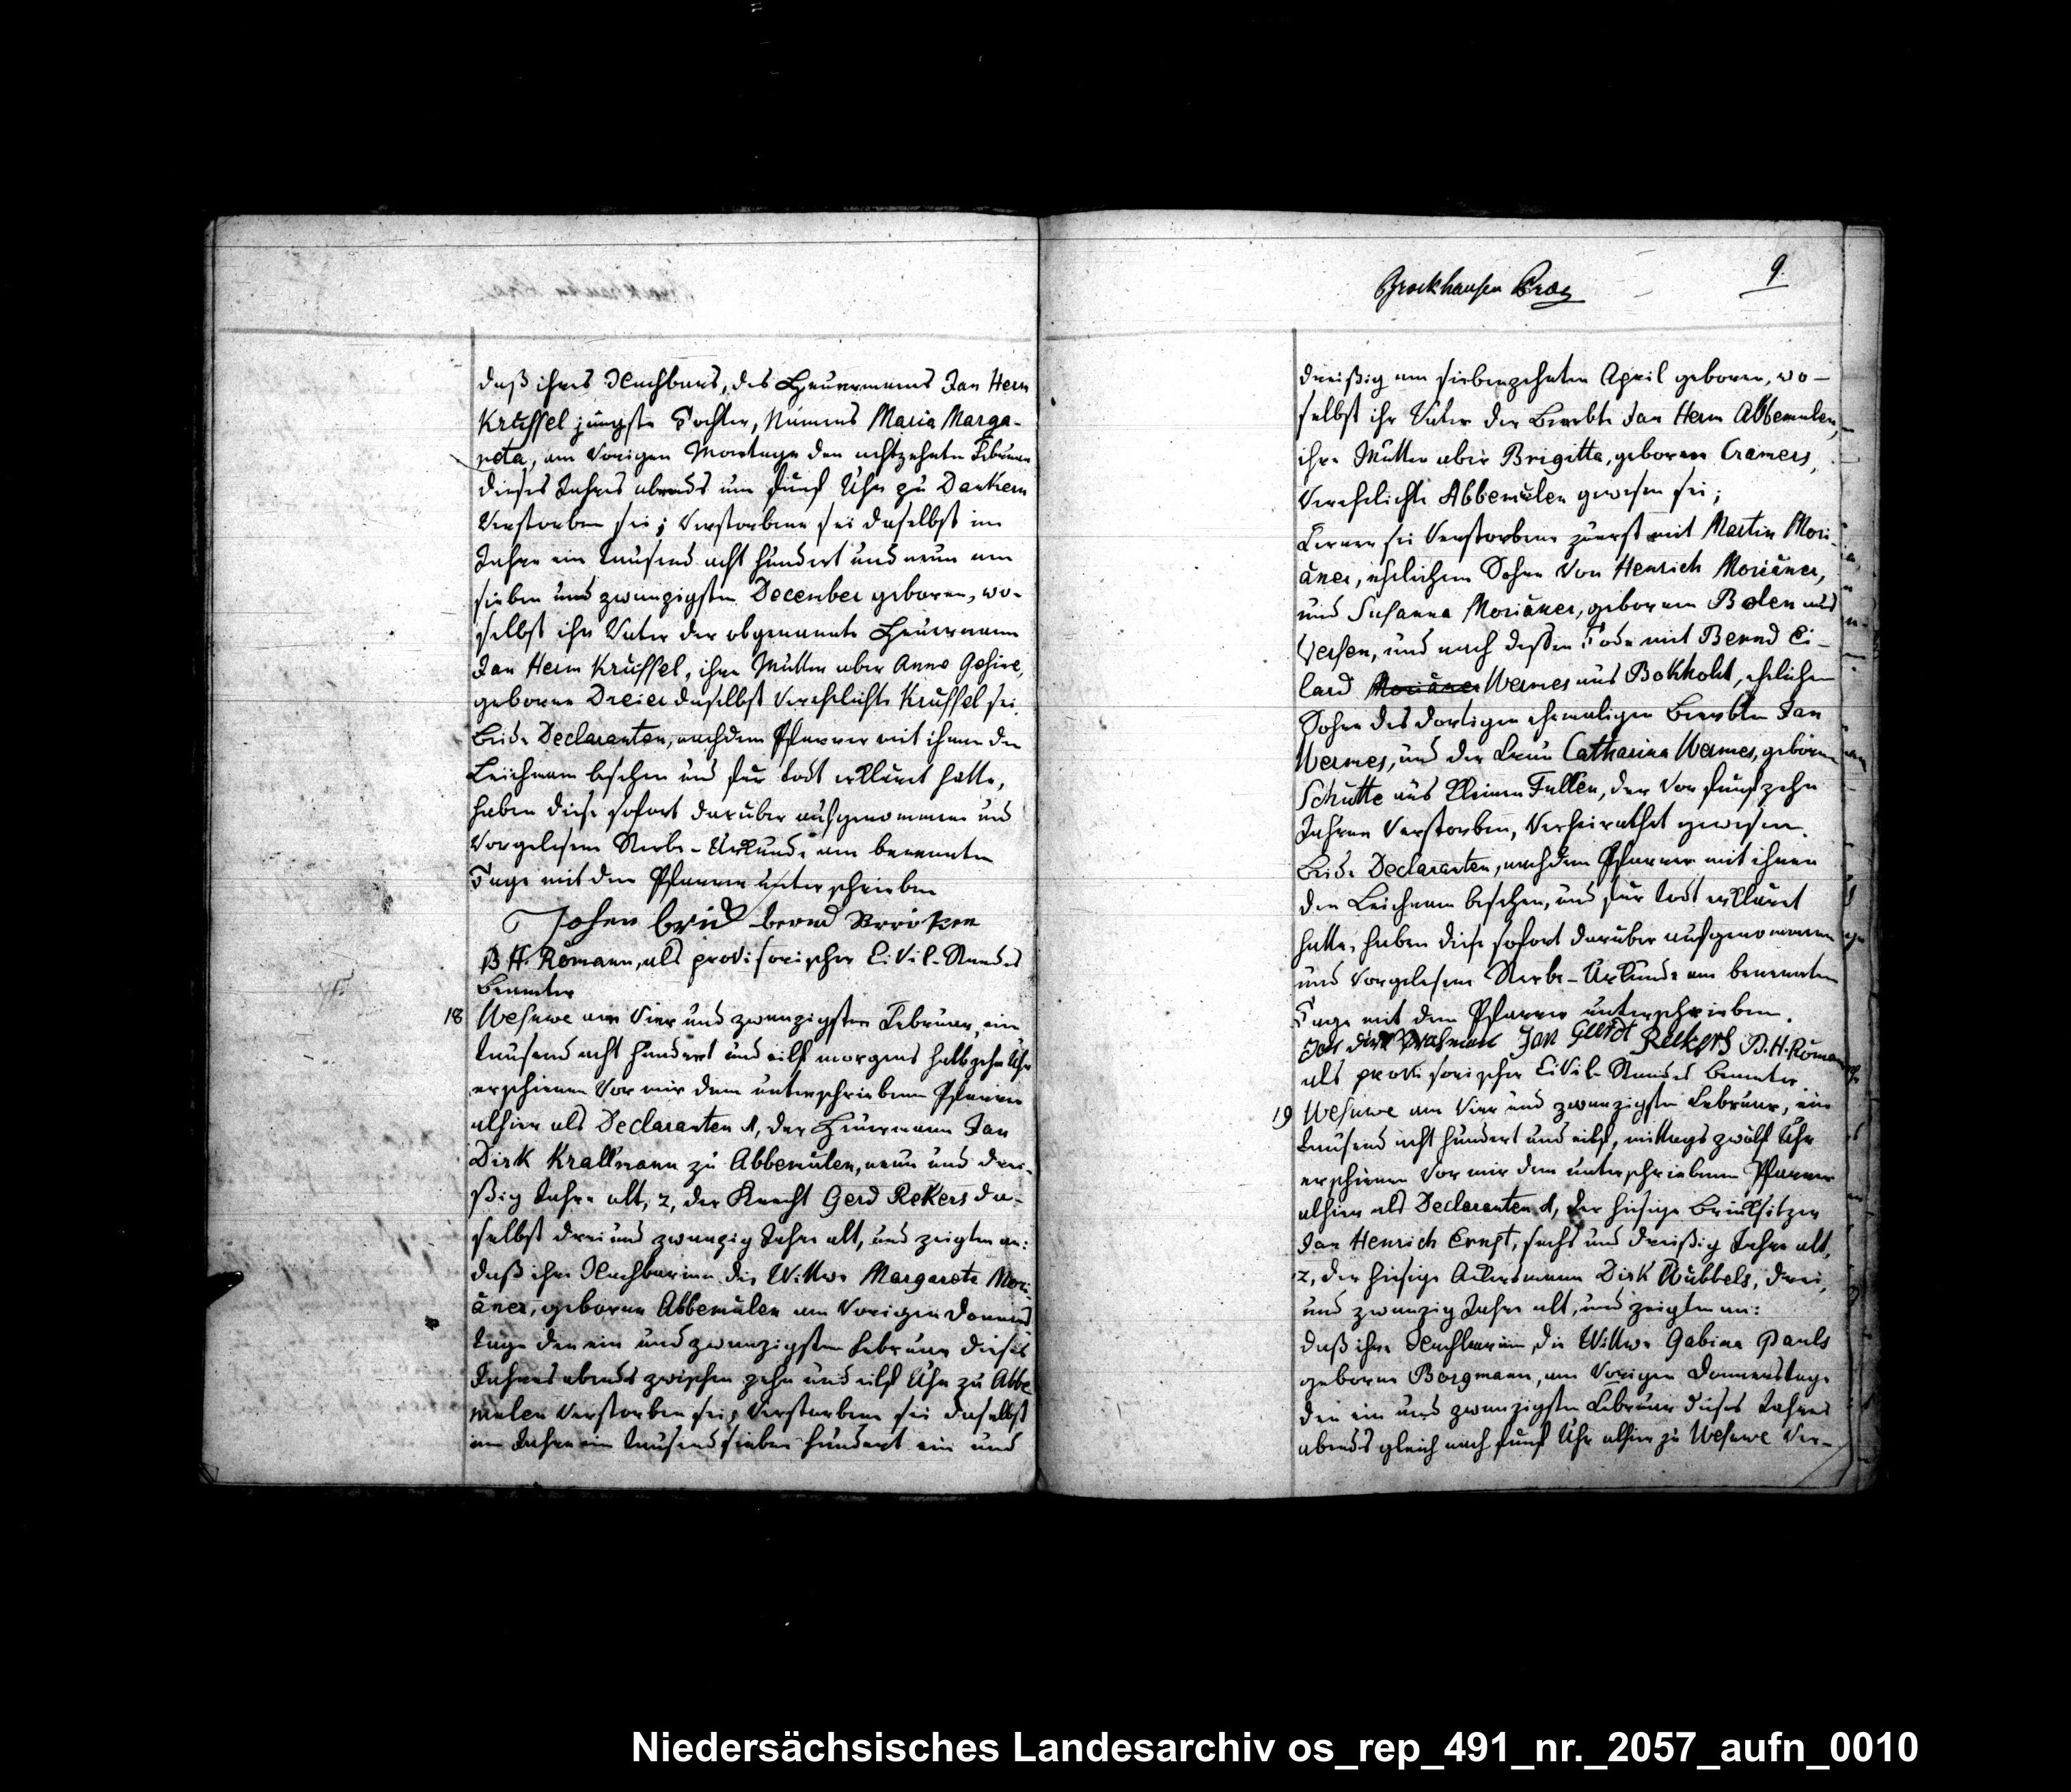 daß ihres Nachbars, des Heuermanns Jan Herm
Krüssel jüngste Tochter, Namens Maria Marga-
reta, am vorigen Montage den achtzehnten Februar
dieses Jahres abends um fünf Uhr zu Dankern
verstorben sei; Verstorbene sei daselbst im
Jahre ein tausend acht hundert und neun am
sieben und zwanzigsten December geboren, wo-
selbst ihr Vater der obgenannte Heuermann
Jan Herm Krüssel, ihre Mutter aber Anna Gesine,
geborne Dreier daselbst verehelichte Krüssel sei.
Beide Declaranten, nachdem Pfarrer mit ihnen den
Leichnam besehen und für todt erkläret hatte,
haben diese sofort darüber aufgenommene und
vorgelesene Sterbe-Urkunde am benannten
Tage mit dem Pfarrer unterschrieben
Johan bernd
B. H. Romann, als provisorischer Civil-Standes
Beamter
18 Wesuwe am vier und zwanzigsten Februar, ein
tausend acht hundert und eilf morgens halb zehn Uhr
erschienen vor mir dem unterschriebenen Pfarrer
alhier als Declaranten 1, der Heuermann Jan
Dirk Krallmann zu Abbemülen, neun und drei-
ßig Jahre alt, 2, der Knecht Gerd Rekers da-
selbst drei und zwanzig Jahre alt, und zeigten an:
daß ihre Nachbarinn die Wittwe Margareta Mori-
äner, geborne Abbemülen am vorigen Donners
tage den ein und zwanzigsten Februar dieses
Jahres abends zwischen zehn und eilf Uhr zu Abbe
mülen verstorben sei; Verstorbene sei daselbst
im Jahre ein tausend sieben hundert ein und
Brockhausen
9.
dreißig am siebenzehnten April geboren, wo-
selbst ihr Vater der Beerbte Jan Herm Abbemülen,
ihre Mutter aber Brigitta, geborene Cramers,
verehelichte Abbemülen gewesen sei;
Ferner sei Verstorbene zuerst mit Martin Mori-
äner, ehelichem Sohne von Henrich Moriäner,
und Susanna Moriäner, gebornen Bolen aus
Versen, und nach dessen Tode mit Bernd Ei-
lard Moriäner Wermes aus Bokholt, ehelichem
Sohne des dortigen ehemaligen Beerbten Jan
Wermes, und der Frau Catharina Wermes, geborne
Schutte aus Kleinen Fullen, der vor fünfzehn
Jahren verstorben, verheirathet gewesen.
Beide Declaranten, nachdem Pfarrer mit ihnen
den Leichnam besehen, und für todt erkläret
hatte, haben diese sofort darüber aufgenommene
und vorgelesene Sterbe-Urkunde am benannten
Tage mit dem Pfarrer unterschrieben.
Jan dirk Jan Geerdt Rekers B. H. Romann
als provisorischer Civil-Standes Beamter.
19 Wesuwe am vier und zwanzigsten Februar, ein
tausend acht hundert und eilf, mittags zwölf Uhr
erschienen vor mir dem unterschriebenen Pfarrer
alhier als Declaranten 1, der hiesige Brinksitzer
Jan Henrich Ernst, sechs und dreißig Jahre alt,
2, der hiesige Ackersmann Dirk Wubbels, drei,
und zwanzig Jahre alt, und zeigten an:
daß ihre Nachbarinn, die Wittwe Gabina Pauls
geborne Borgmann, am vorigen Donnerstage
den ein und zwanzigsten Februar dieses Jahres
abends gleich nach fünf Uhr alhier zu Wesuwe ver-
Niedersächsisches Landesarchiv os_rep_491_nr._2057_aufn_0010